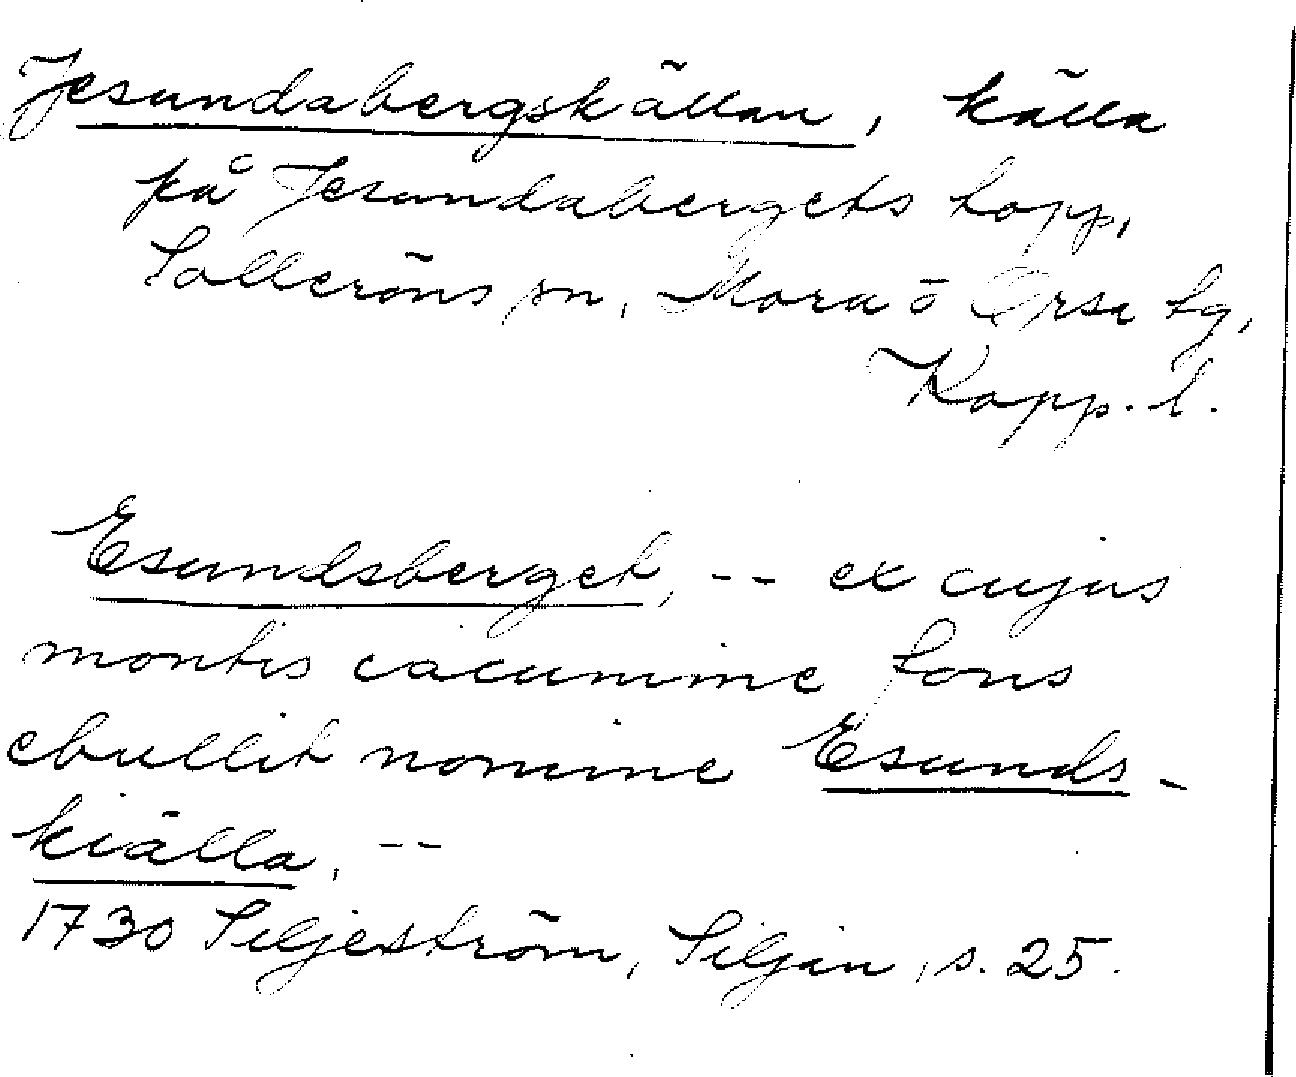 Jesundabergskällan, källa
på Jesundabergets topp,
Solleröns sn, Mora o Orsa tg,
Kopp. l.
Esundsberget, -- ex cujus
montis cacumine fons
ebullit nomine Esunds-
kiälla, --
1730 Siljeström, Siljan, s. 25.